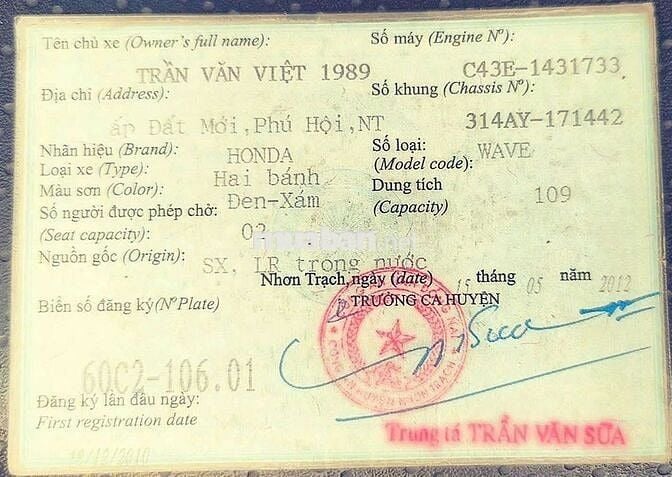 Tên chủ xe (Owner's full name): Số máy (Engine Nº):
TRẦN VĂN VIỆT 1989 C43E-1431733
Địa chỉ (Address): Số khung (Chassis Nº):
ấp Đất Mới,Phú Hội,NT 314AY-171442
Nhãn hiệu (Brand): HONDA Số loại: WAVE
Loại xe (Type): Hai bánh (Model code):
Màu sơn (Color): Đen-Xám Dung tích 109
Số người được phép chở: (Capacity)
(Seat capacity): 02
muaban
Nguồn gốc (Origin): SX, LR trong nước
Nhơn Trạch, ngày (date) 15 tháng 05 năm 2012
Biển số đăng ký(Nº Plate) TRƯỞNG CA HUYỆN
60C2-106.01
CÔNG AN HUYỆN NHƠN TRẠCH
Đăng ký lần đầu ngày:
First registration date
Trung tá TRẦN VĂN SỮA